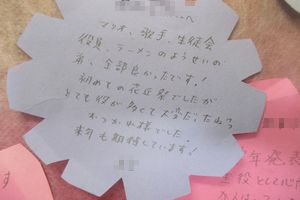 へ
マリオ、歌手、生徒会
役員、ラーメンのようせいの
弟、全部良かったです!
初めての花丘祭でしたが
とても役が多くて大変だったね
おつかれ様でした。
来年も期待しています!
年発表
主役として心
す